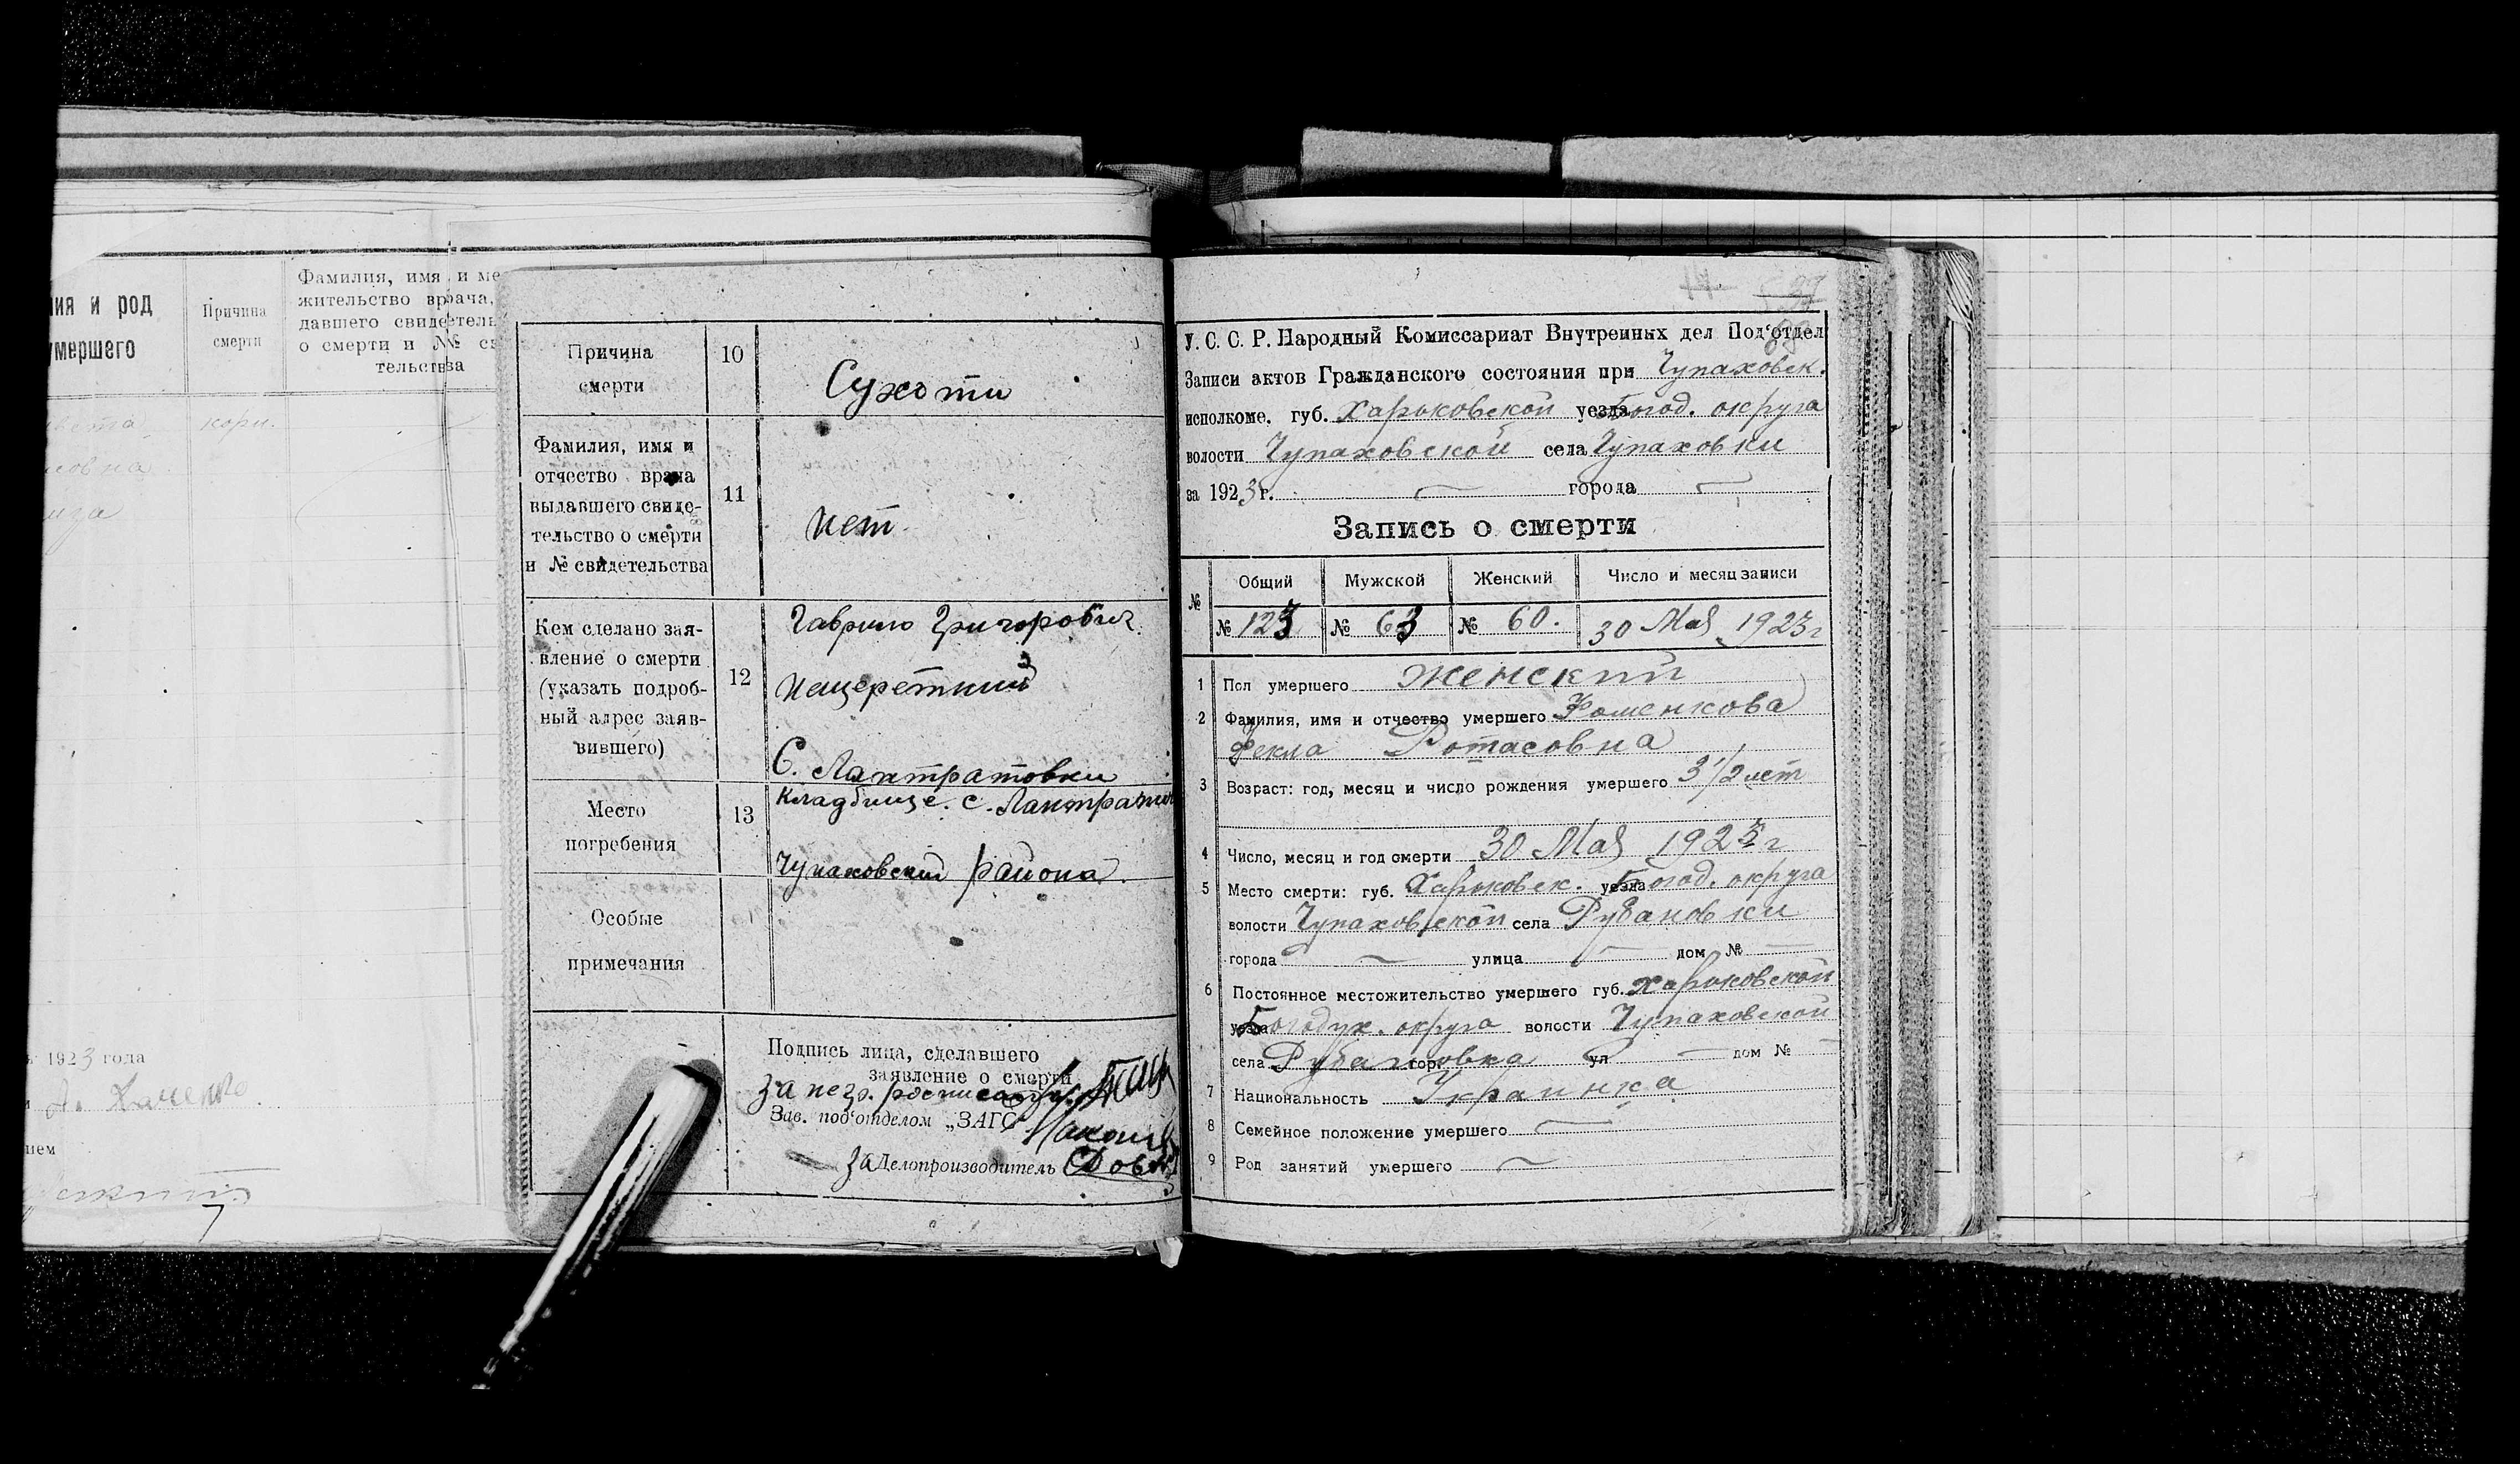 ия и род
умершего
Причина
смерти
Фамилия, имя и ме
жительство врача,
давшего свидетель
о смерти и № св
тельства
кори.
овна
1923 года
нем
7
Причина
смерти
10
Сухоти
Фамилия, имя и
отчество врача
выдавшего свиде-
тельство о смерти
и № свидетельства
11
нет.
Кем сделано зая-
вление о смерти
(указать подроб-
ный адрес заяв-
вившего)
12
Гаврило Григорович
Нещереткий
С. Лантратовки
Место
погребения
13
Кладбище. с. Лантратов
Чупаховский района.
Особые
примечания
Подпись лица, сделавшего
заявление о смерти
за негр. росписался
Зав. под‘отделом „ЗАГС“
за Делопроизводитель
У. С. С. Р. Народный Комиссариат Внутренных дел Под‘отдел
Записи актов Гражданского состояния при Чупаховск.
исполкоме. губ. Харьковской уезда Богод. округа
волости Чупаховской села Чупаховки
за 1923 г. — города —
Запись о смерти
№ Общий Мужской Женский Число и месяц записи
№ 123 № 63 № 60. 30 Мая 1923 г
1 Пол умершего женский
2 Фамилия, имя и отчество умершего Фоменкова
Фекла Потасовна
3 Возраст: год, месяц и число рождения умершего 3 1/2 лет
4 Число, месяц и год смерти 30 Мая 1923 г
5 Место смерти: губ. Харьковск. уезда Богод. округа
волости Чупаховской села Рубановки
города — улица — дом № —
6 Постоянное местожительство умершего губ. Харьковской
уезда Богодух. округа волости Чупаховской
села Рубановка гор. ул — дом № —
7 Национальность Украинка
8 Семейное положение умершего —
9 Род занятий умершего —